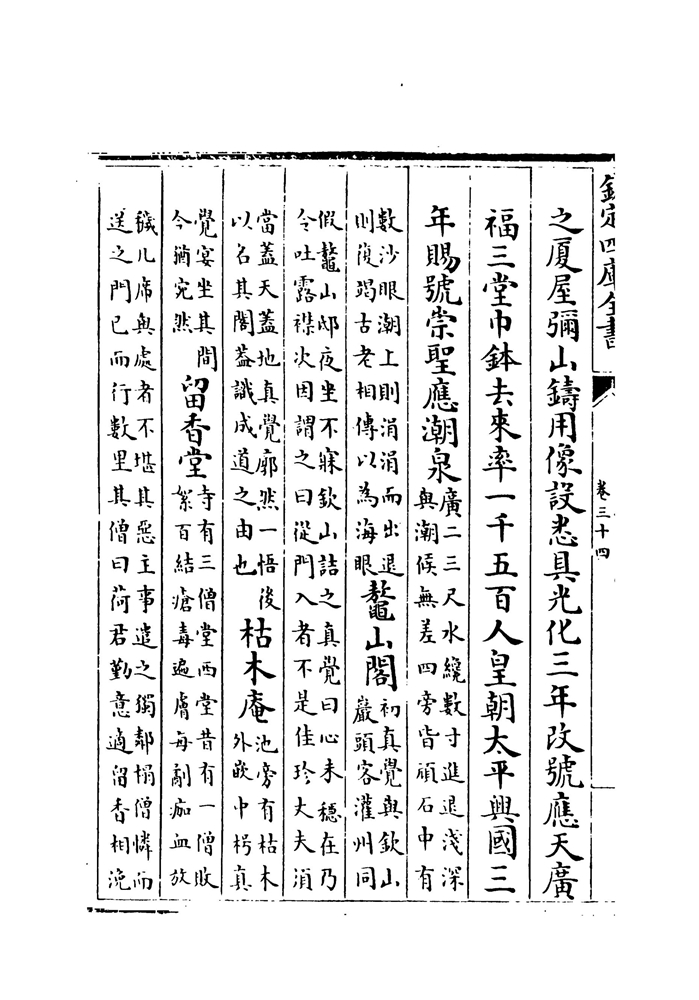 欽定四庫全書
卷三十四
之厦屋彌山鑄用像設悉具光化三年改號應天廣
福三堂巾鉢去來率一千五百人皇朝太平興國三
年賜號崇聖應潮泉
廣二三尺水纔數寸進退淺深
與潮候無差四旁皆頑石中有
數沙眼潮上則涓涓而出退
則復竭古老相傳以為海眼
鼇山閣
初真覺與欽山
巖頭客灌州同
假鼇山邸夜坐不寐欽山詰之真覺曰心未穩在乃
令吐露襟次因謂之曰從門入者不是佳珍大夫須
當蓋天蓋地真覺廓然一悟後
以名其閣葢識成道之由也
枯木庵
池旁有枯木
外嵌中枵真
覺宴坐其間
今猶宛然
留香堂
寺有三僧堂西堂昔有一僧敗
絮百結瘡毒遍膚每剮痂血放
穢几席與處者不堪其惡主事遣之獨鄰榻僧憐而
送之門已而行數里其僧曰荷君勤意適留香相浼